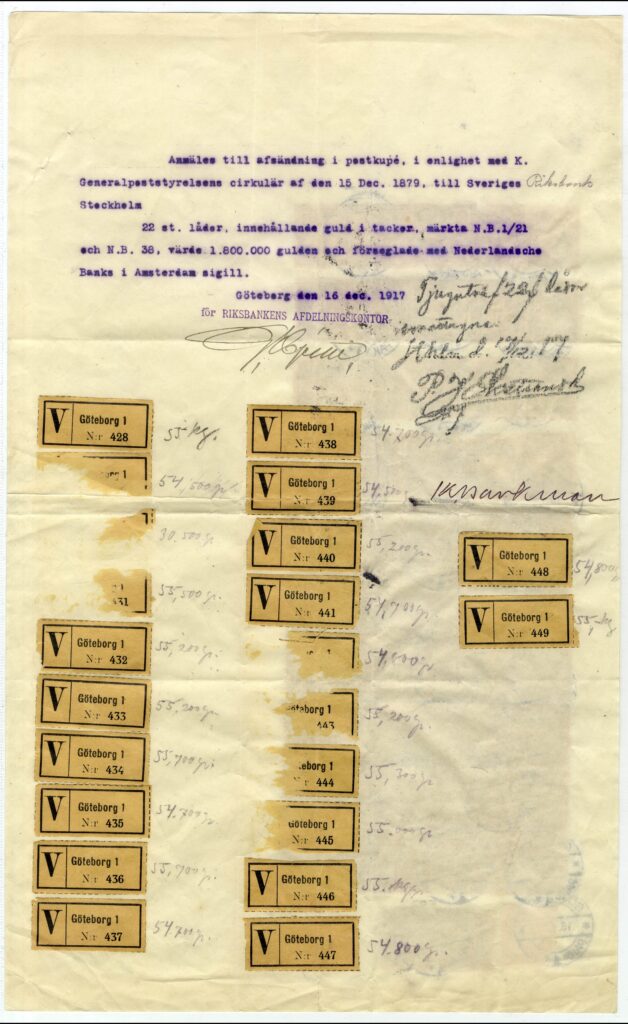 Anmäles till afsändning i postkupé, i enlighet med K.
Generalpoststyrelsens cirkulär af den 15 Dec. 1879, till Sveriges Riksbank
Stockholm
22 st. lådor, innehållande guld i tackor, märkta N.B.1/21
och N.B. 38, värde 1.800.000 gulden och förseglade med Nederlandsche
Banks i Amsterdam sigill.
Göteborg den 16 dec. 1917
för RIKSBANKENS AFDELNINGSKONTOR
Tjugutvå /22/ lådor
V Göteborg 1 N:r 428 55 kg.
54,500gr
30.500gr
31 55,500gr.
V Göteborg 1 N:r 432 55,200gr.
V Göteborg 1 N:r 433 55,200gr.
V Göteborg 1 N:r 434 55,700gr.
V Göteborg 1 N:r 435 54.700gr.
V Göteborg 1 N:r 436 55,700gr.
V Göteborg 1 N:r 437 54.700gr.
V Göteborg 1 N:r 438 54.700gr.
V Göteborg 1 N:r 439
V Göteborg 1 N:r 440 55,200gr.
V Göteborg 1 N:r 441 54,700gr.
54,800gr
443 55,200gr.
444
445
V Göteborg 1 N:r 446 55.
V Göteborg 1 N:r 447 54.800gr.
V Göteborg 1 N:r 448 54,800
V Göteborg 1 N:r 449 55 kg